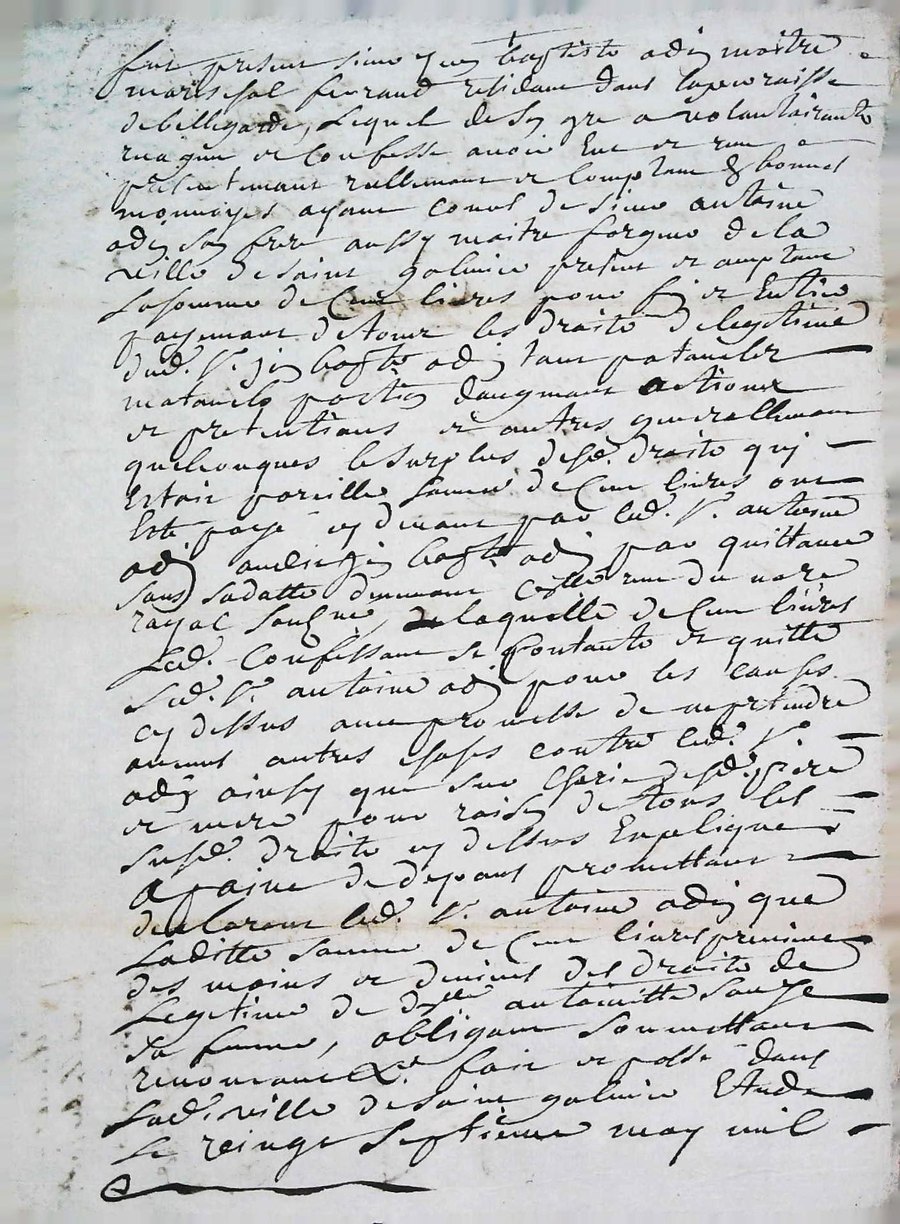 fut present sieur jen baptiste odin maitre
mareschal ferrand residant dans la parroisse
de bellegarde, Lequel de son gre a volontairante
recogneu et Confesse avoir Eue et receu
presentemant reellemant et Comptant En bonnes
monnoyes ayant cours de sieur antoine
odin son frere aussy maitre forgeur de la
ville de saint galmier present et acceptant
La somme de Cent livres pour fin et Entier
payemant de toux les droits de legitime
dud. Sr. jen bapte odin tant paternelz
maternelz portion daugmant actions
et pretentions et autres generallemant
quelconques le surplus desd. droits qui
Estoit pareille somme de Cent livres ont
Este paye cy devant par led. Sr. antoine
odin audit jen bapte odin par quittance
sous sa datte devant receue du notre
royal soubsne, de laquelle de Cent livres
Led. Confessant se Contante et quitte
Led. Sr. antoine odin pour les causes
cy dessus avec promesse de ne pretendre
aucunes autres choses contre led. Sr.
odin ainsy que sur desd. piere
et mere pour raison de tous les
susd. droits cy dessus Expliques
a paine de depans promettant
declarant led. Sr. antoine odin que
Laditte somme de Cent livres provient
des moins et deniers des droits de
Legitime de dlle antoinette
sa femme, obligant soumettant
renoncant &c. fait et passe dans
lad. ville de saint galmier Etude
Le vingt septieme may mil